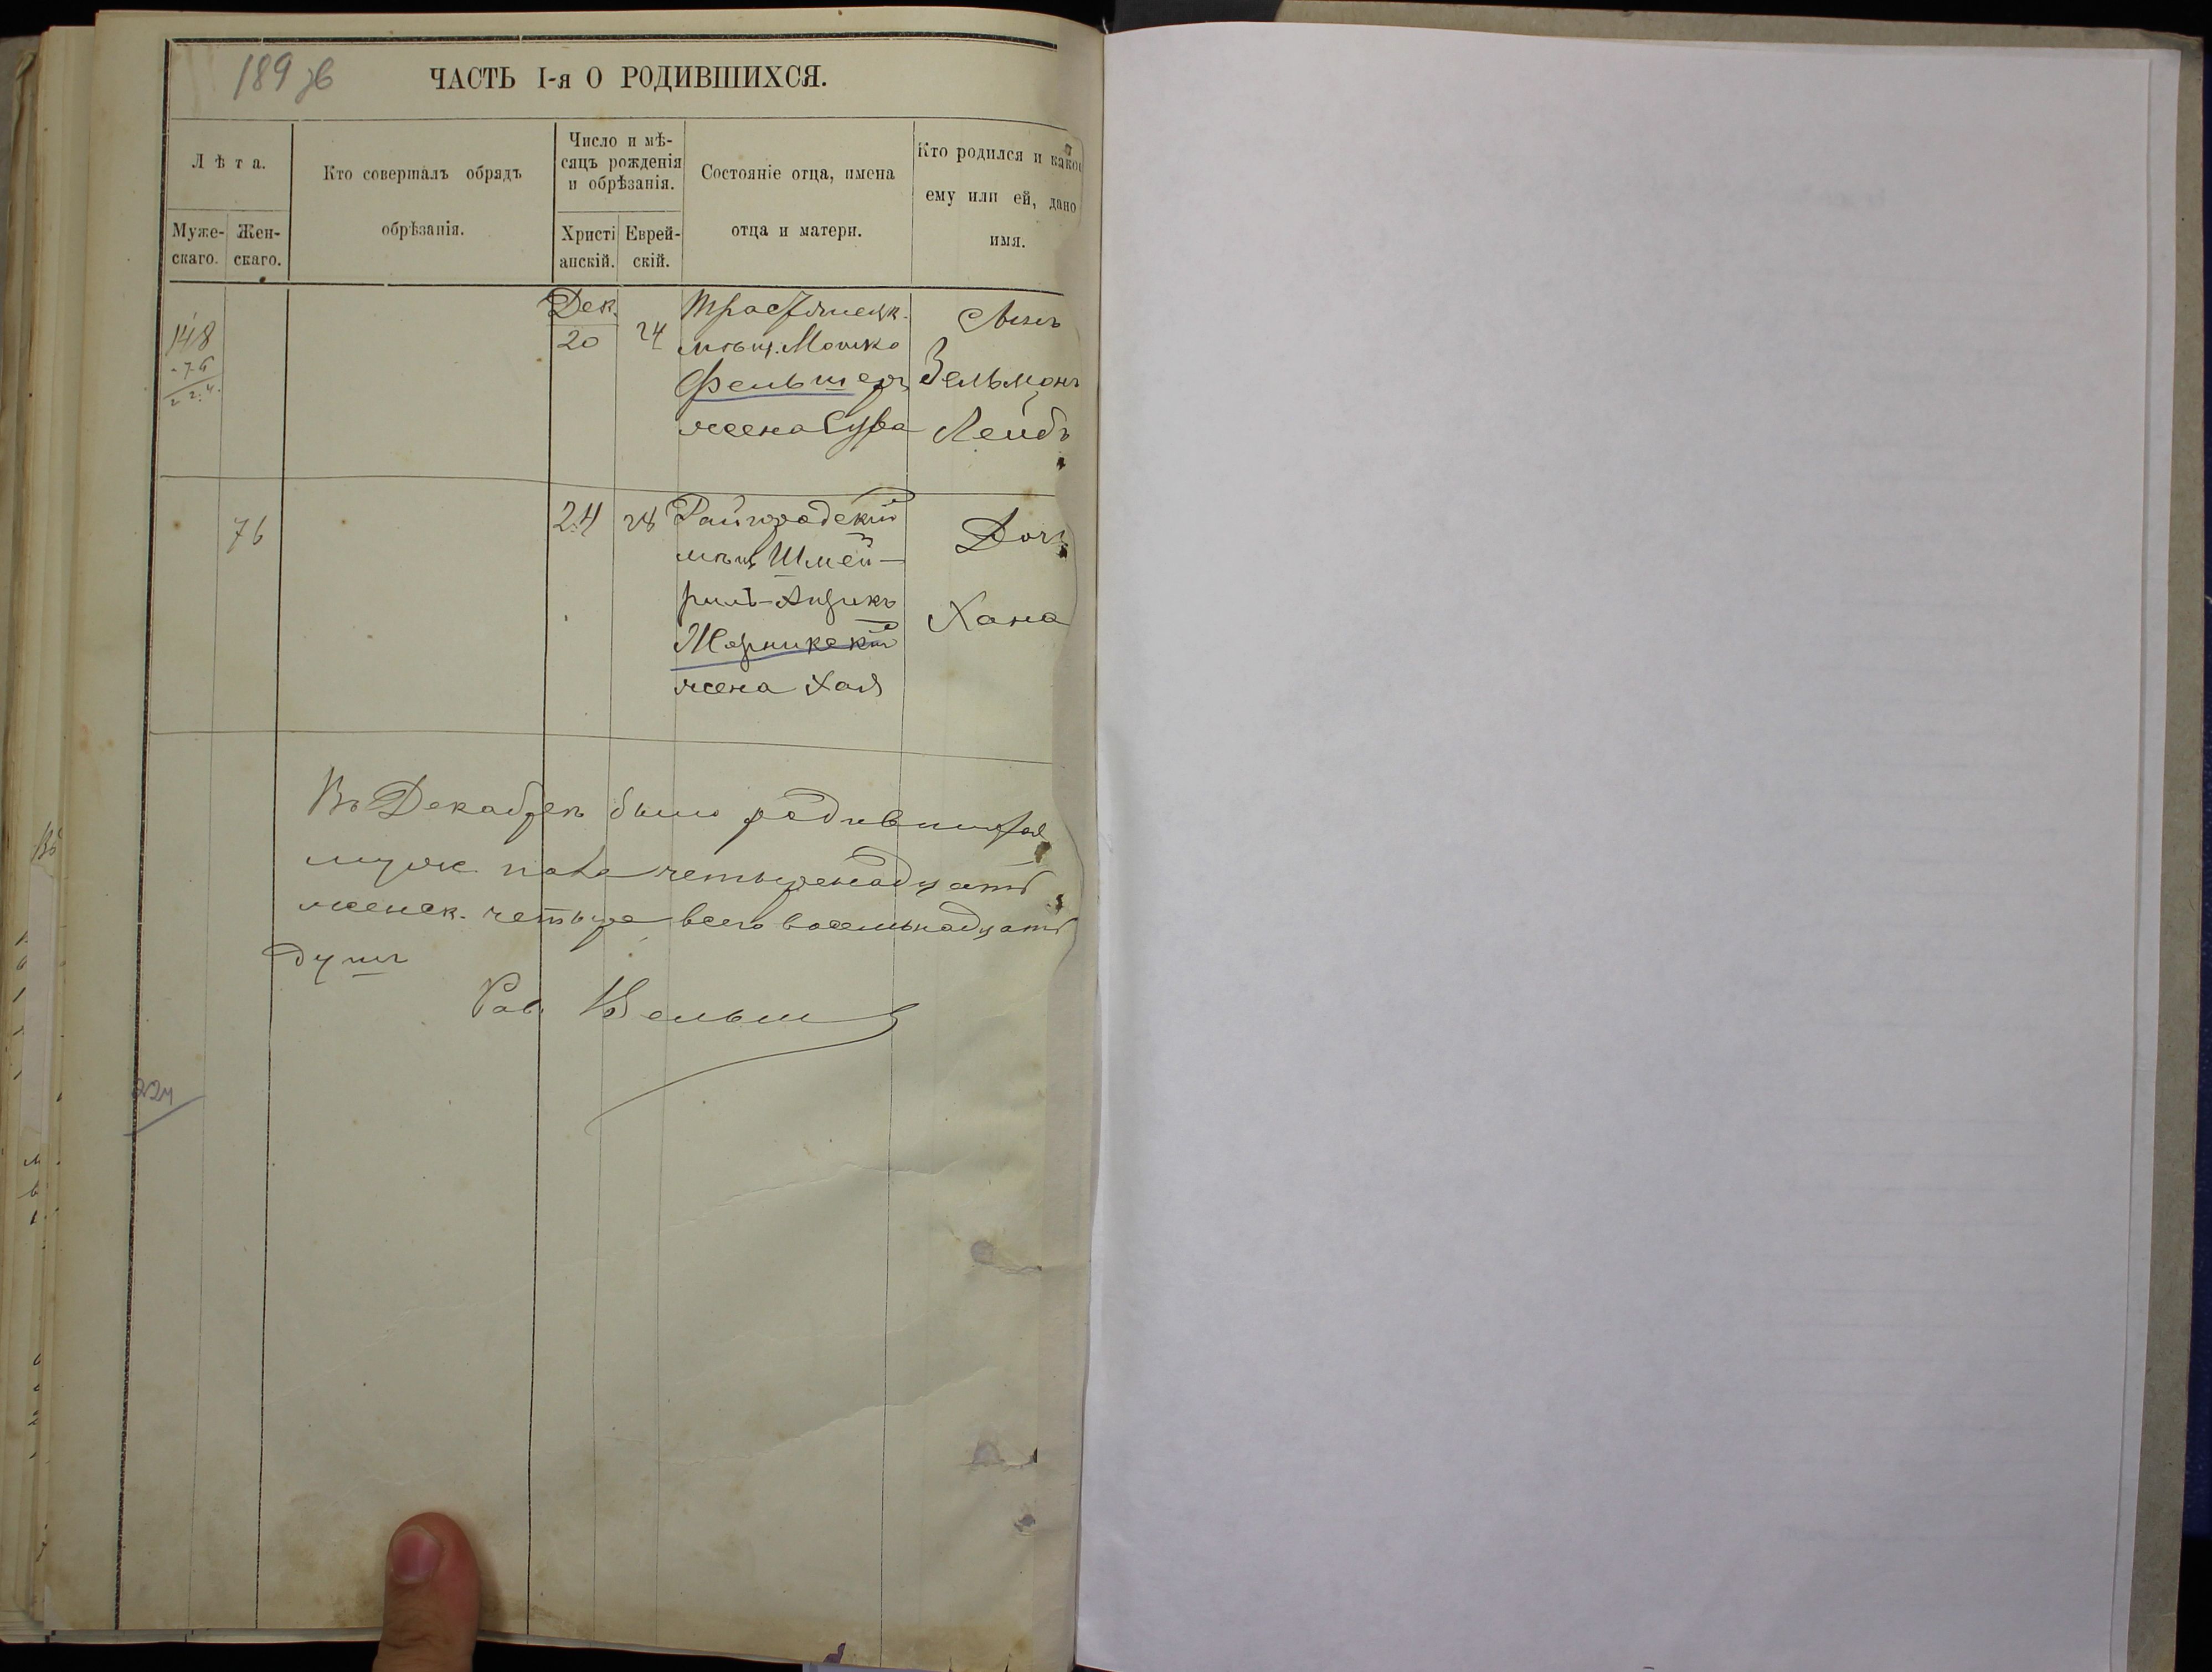 189 об
ЧАСТЬ I-я О РОДИВШИХСЯ.
Лѣта.
Муже-
скаго.
Жен-
скаго.
Кто совершалъ обрядъ
обрѣзанія.
Число и мѣ-
сяцъ рожденія
и обрѣзанія.
Христі
анскій.
Еврей-
скій.
Состояніе отца, имена
отца и матери.
Кто родился и какое
ему или ей, дано
имя.
148
-76
224.
Дек.
20
24
Тростянецк.
мѣщ. Мошко
Фельшеръ
жена Сура
Сынъ
Зельманъ
Лейбъ
76
24
28
Райгородскій
мѣщ Шмей-
риль-Ицикъ
жена Хая
Дочь
Хана
Въ Декабрѣ было родившихся
муж. пола четыренадцать
женск. четыре всего восемьнадцать
душъ
Раб.
224